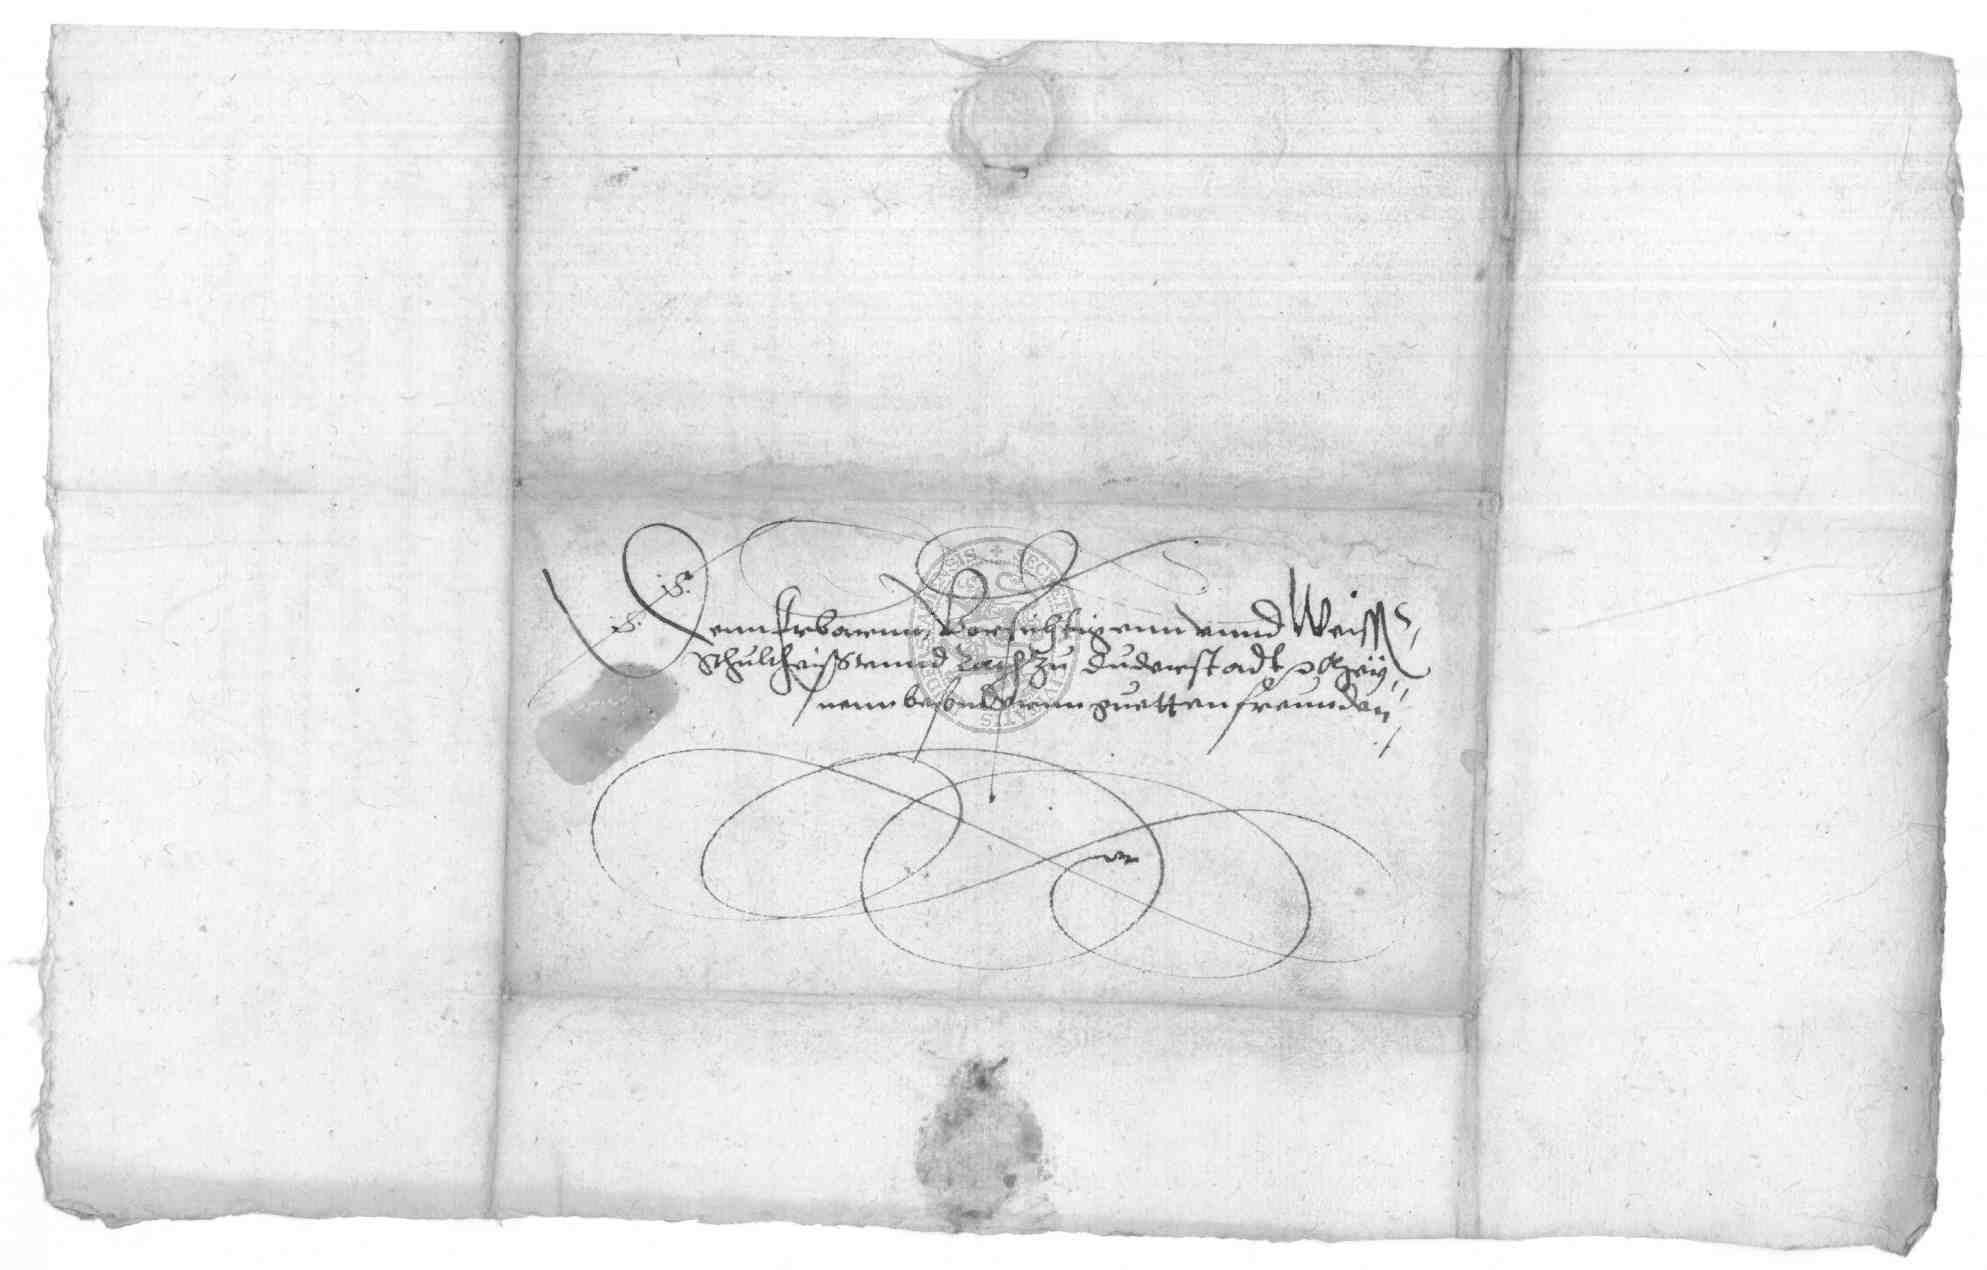 Denn Erbarenn, Vorsichtigenn vnnd Weiss,
Schultheiss vnnd Rath zu Duderstadt Mey,,
nenn besondernn guetten freunden